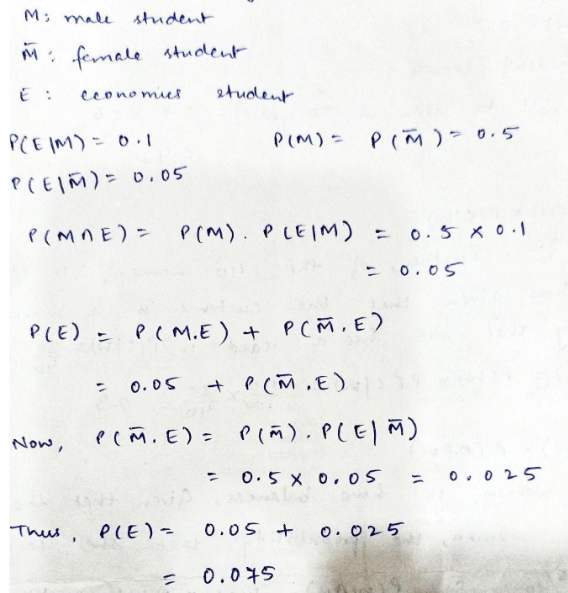 M: male student
M̄: female student
E : economics student
P(E|M) = 0.1 P(M) = P(M̄) = 0.5
P(E|M̄) = 0.05
P(M∩E) = P(M). P(E|M) = 0.5 x 0.1
= 0.05
P(E) = P(M.E) + P(M̄.E)
= 0.05 + P(M̄.E)
Now, P(M̄.E) = P(M̄). P(E|M̄)
= 0.5 x 0.05 = 0.025
Thus, P(E) = 0.05 + 0.025
= 0.075